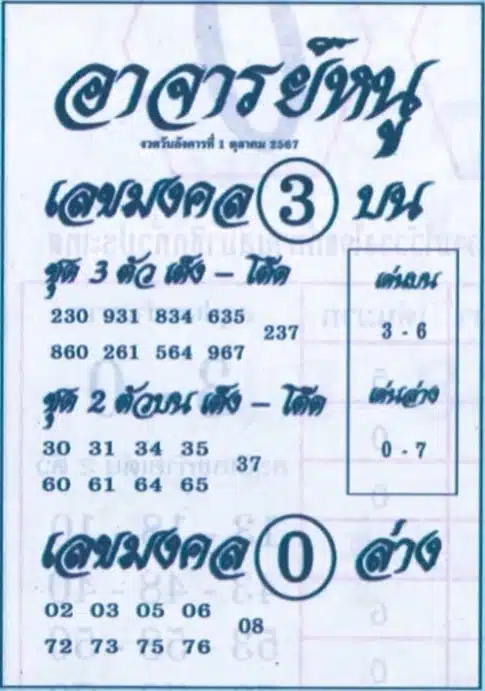 อาจารย์หนู
งวดวันอังคารที่ 1 ตุลาคม 2567
เลขมงคล 3 บน
ชุด 3 ตัว เต็ง – โต๊ด
230 931 834 635
237
860 261 564 967
ชุด 2 ตัวบน เต็ง – โต๊ด
30 31 34 35
37
60 61 64 65
เด่นบน
3 - 6
เด่นล่าง
0 - 7
เลขมงคล 0 ล่าง
02 03 05 06
08
72 73 75 76